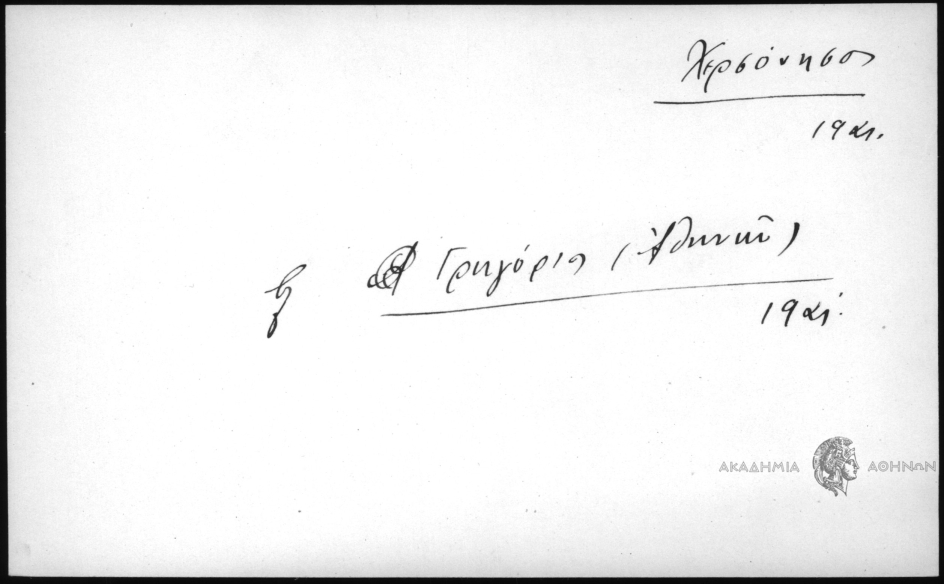 Χερσόνησος
1921.
Γρηγόρις (Ἀθηναϊ)
1921.
ΑΚΑΔΗΜΙΑ ΑΘΗΝΩΝ